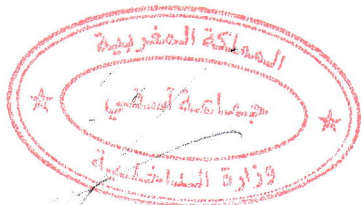 المملكة المغربية
جماعة
وزارة الداخلية